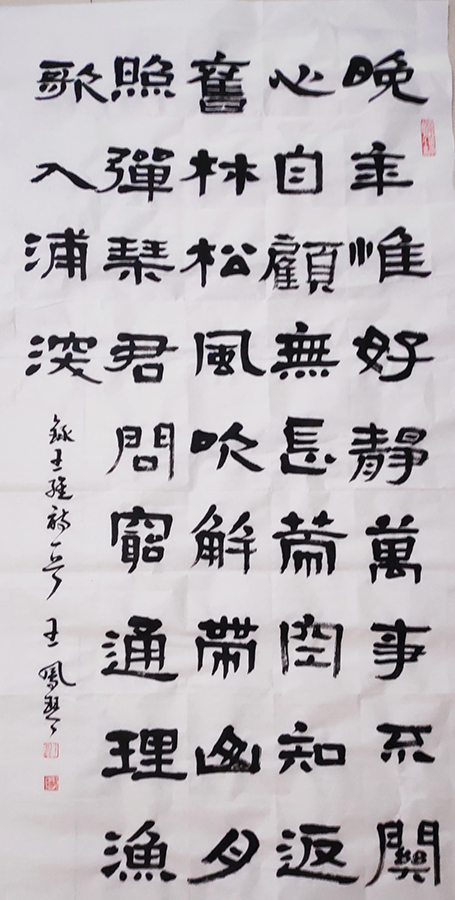 晚年惟好靜萬事不關
心自顧無長策空知返
舊林松風吹解帶山月
照彈琴君問窮通理漁
歌入浦深
錄王維詩一首 王鳳琴